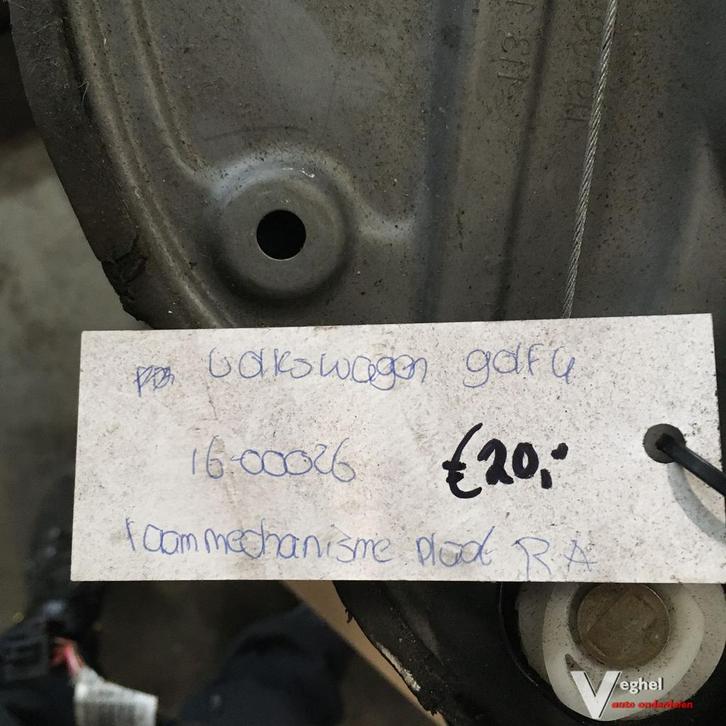 Volkswagen golf 4
16-00026
€20,-
raammechanisme plaat RA
Veghel
auto onderdelen